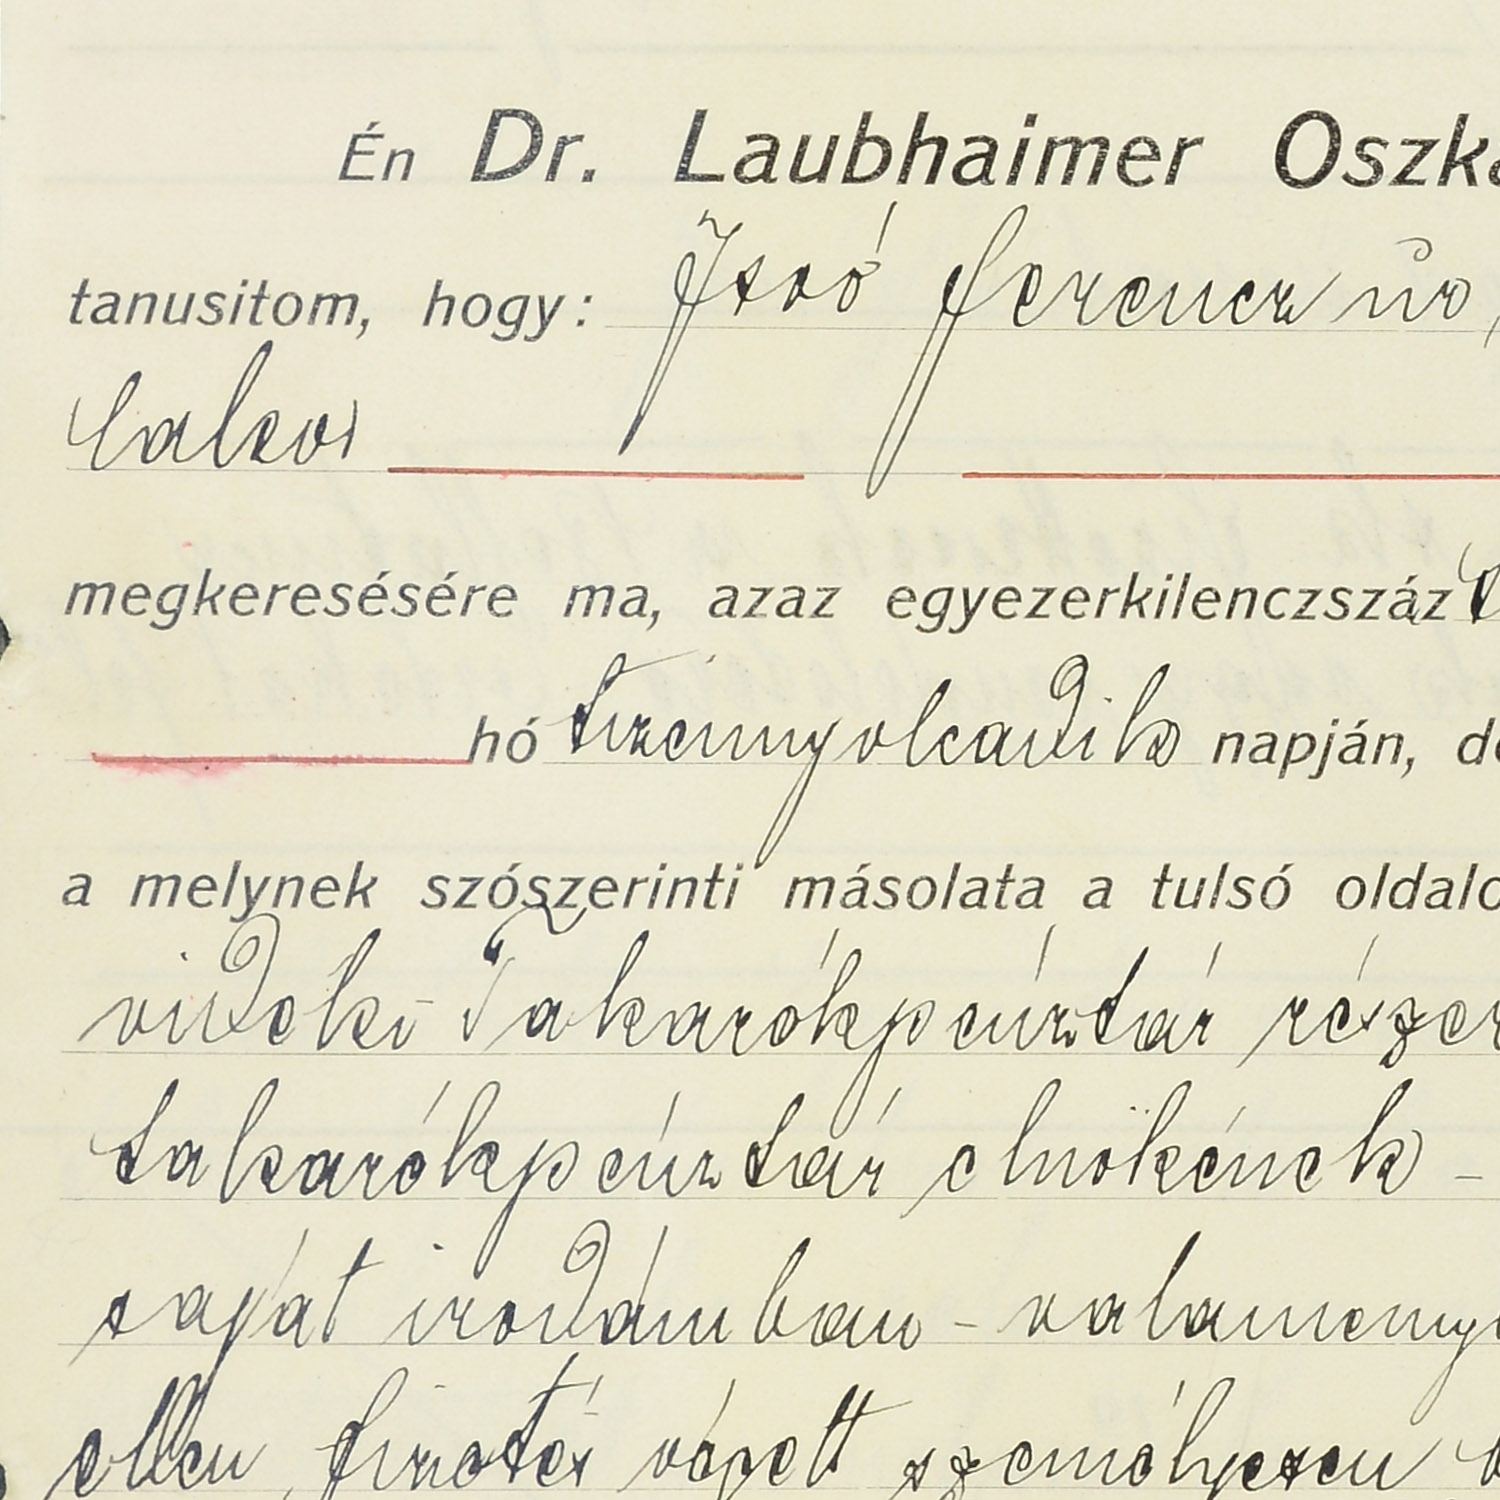 Én Dr. Laubhaimer Oszká
tanusitom, hogy: Izsó Ferencz úr,
lakos
megkeresésére ma, azaz egyezerkilenczszáz
hó tizennyolcadik napján, dé
a melynek szószerinti másolata a tulsó oldalo
vidéki Takarékpénztár részer
takarékpénztár elnökének -
saját irodámban - valamenny
ellen fizetés végett személyesen